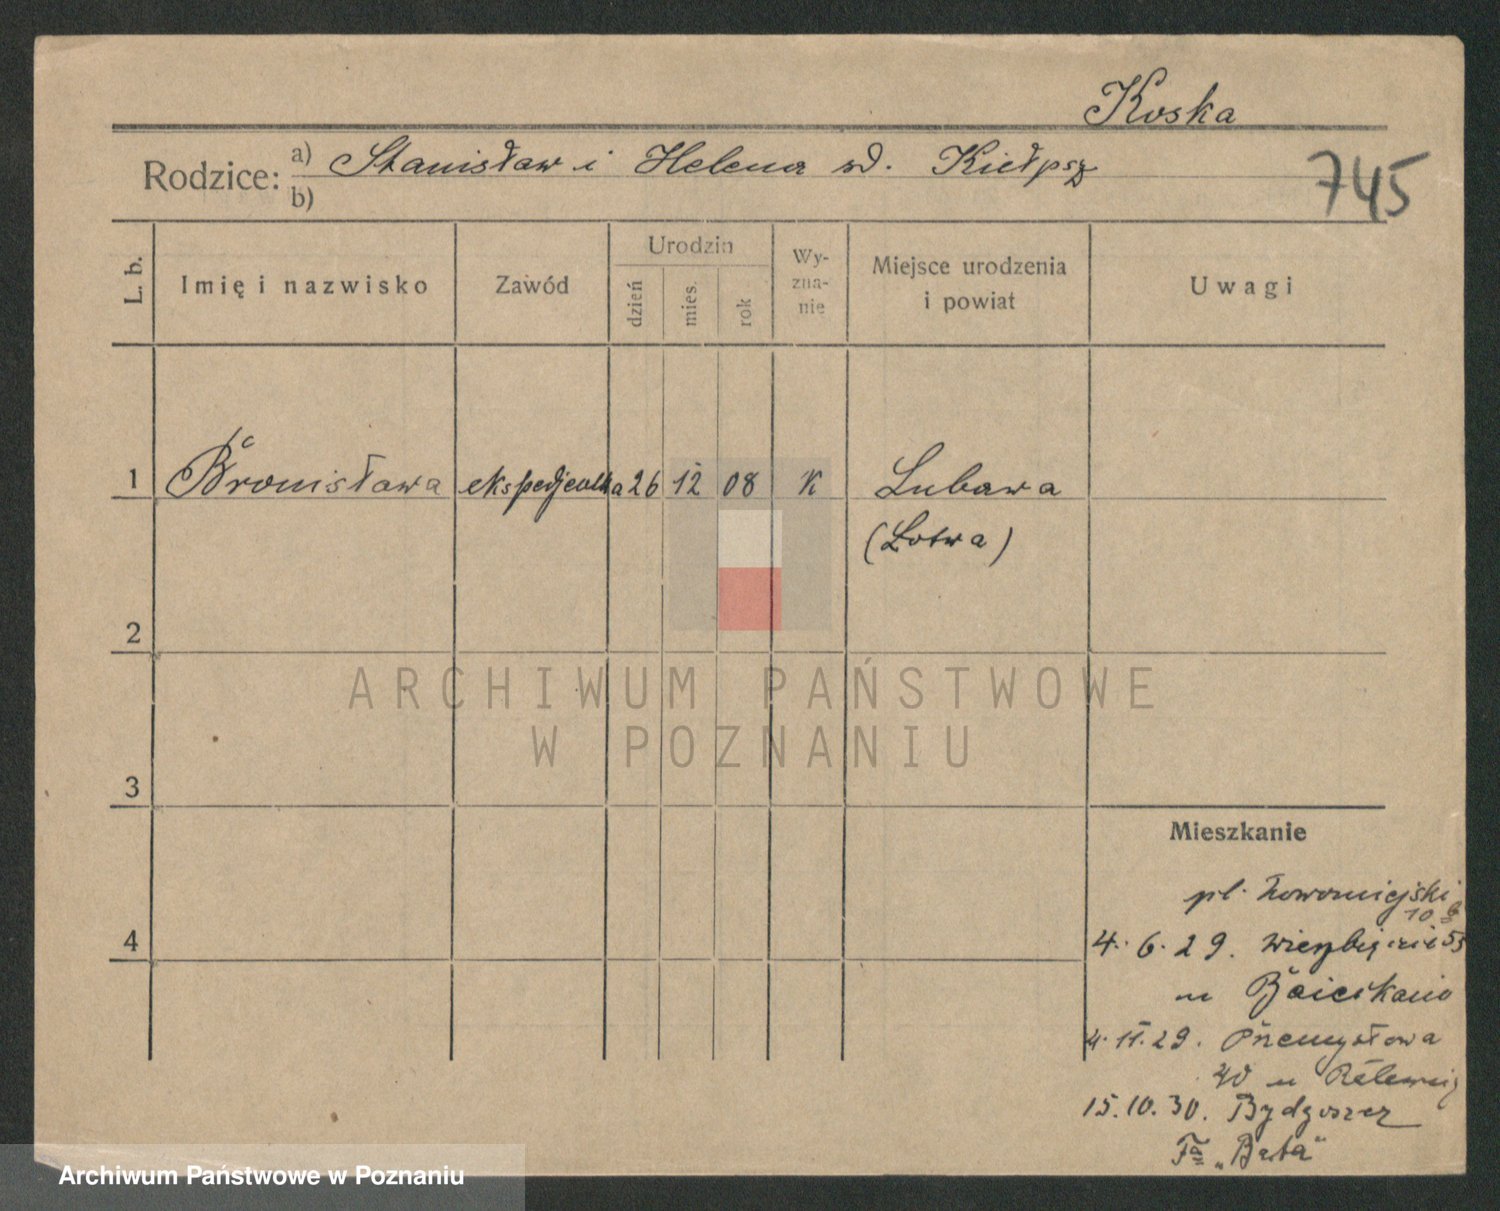 Koska
Rodzice: a) Stanisław i Helena
b)
745
L. b.
Imię i nazwisko
Zawód
Urodzin
dzień
mies.
rok
Wy-
zna-
nie
Miejsce urodzenia
i powiat
Uwagi
1 Bronisława ekspedjentka 26 12 08 K Lubawa
(Łotwa)
2
ARCHIWUM PAŃSTWOWE
W POZNANIU
3
Mieszkanie
pl. Nowomiejski
10
4
4. 6. 29.
u
4. 11. 29. Przemysłowa
40 u
15. 10. 30. Bydgoszcz
Fa „Bata"
Archiwum Państwowe w Poznaniu